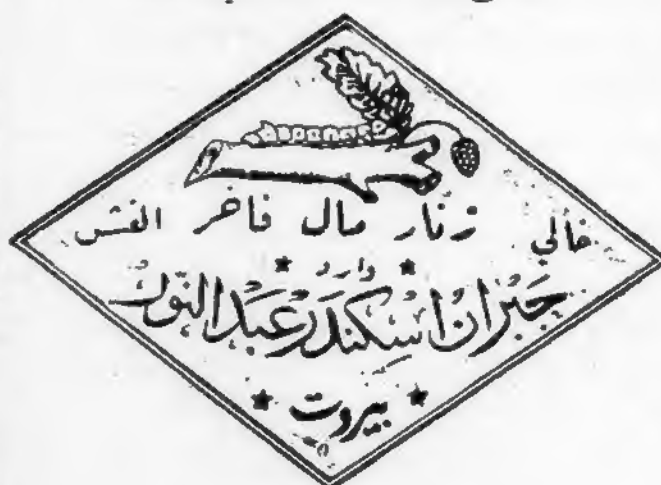 خالي زنار مال فاخر الغش
* وارد *
جبران اسكندر عبد النور
* بيروت *